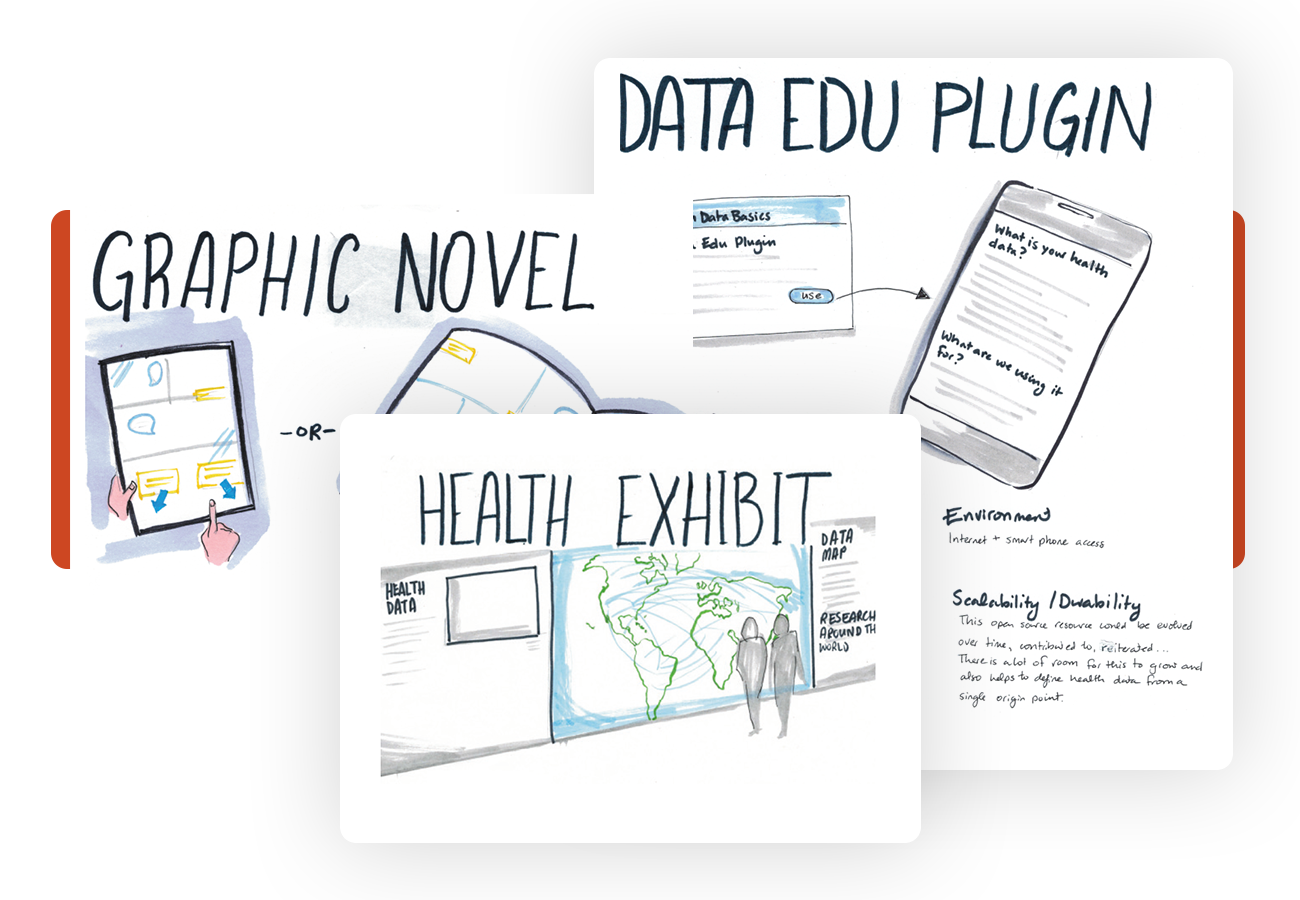 DATA EDU PLUGIN
Data Basics
Edu Plugin
use
What is your health
data?
What are we using it
for?
Environment
Internet + smart phone access
Scalability / Durability
This open source resource would be evolved
over time, contributed to, reiterated...
There is a lot of room for this to grow and
also helps to define health data from a
single origin point.
GRAPHIC NOVEL
-OR-
HEALTH EXHIBIT
HEALTH
DATA
DATA
MAP
RESEARCH
AROUND TH
WORLD